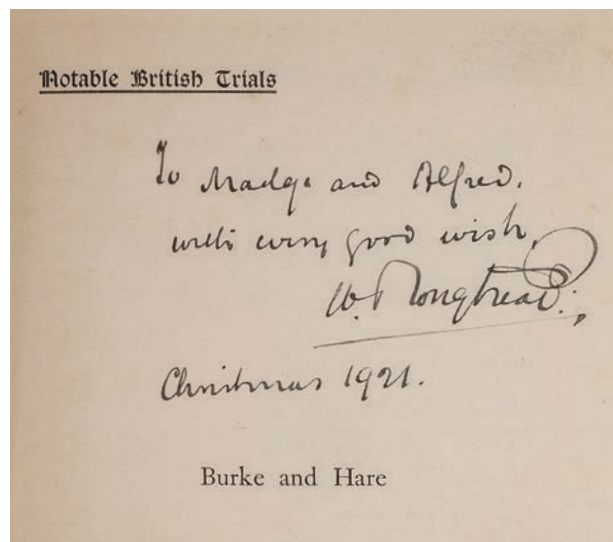 Notable British Trials
To Madge and Alfred,
with every good wish,
W. Roughead.
Christmas 1921.
Burke and Hare